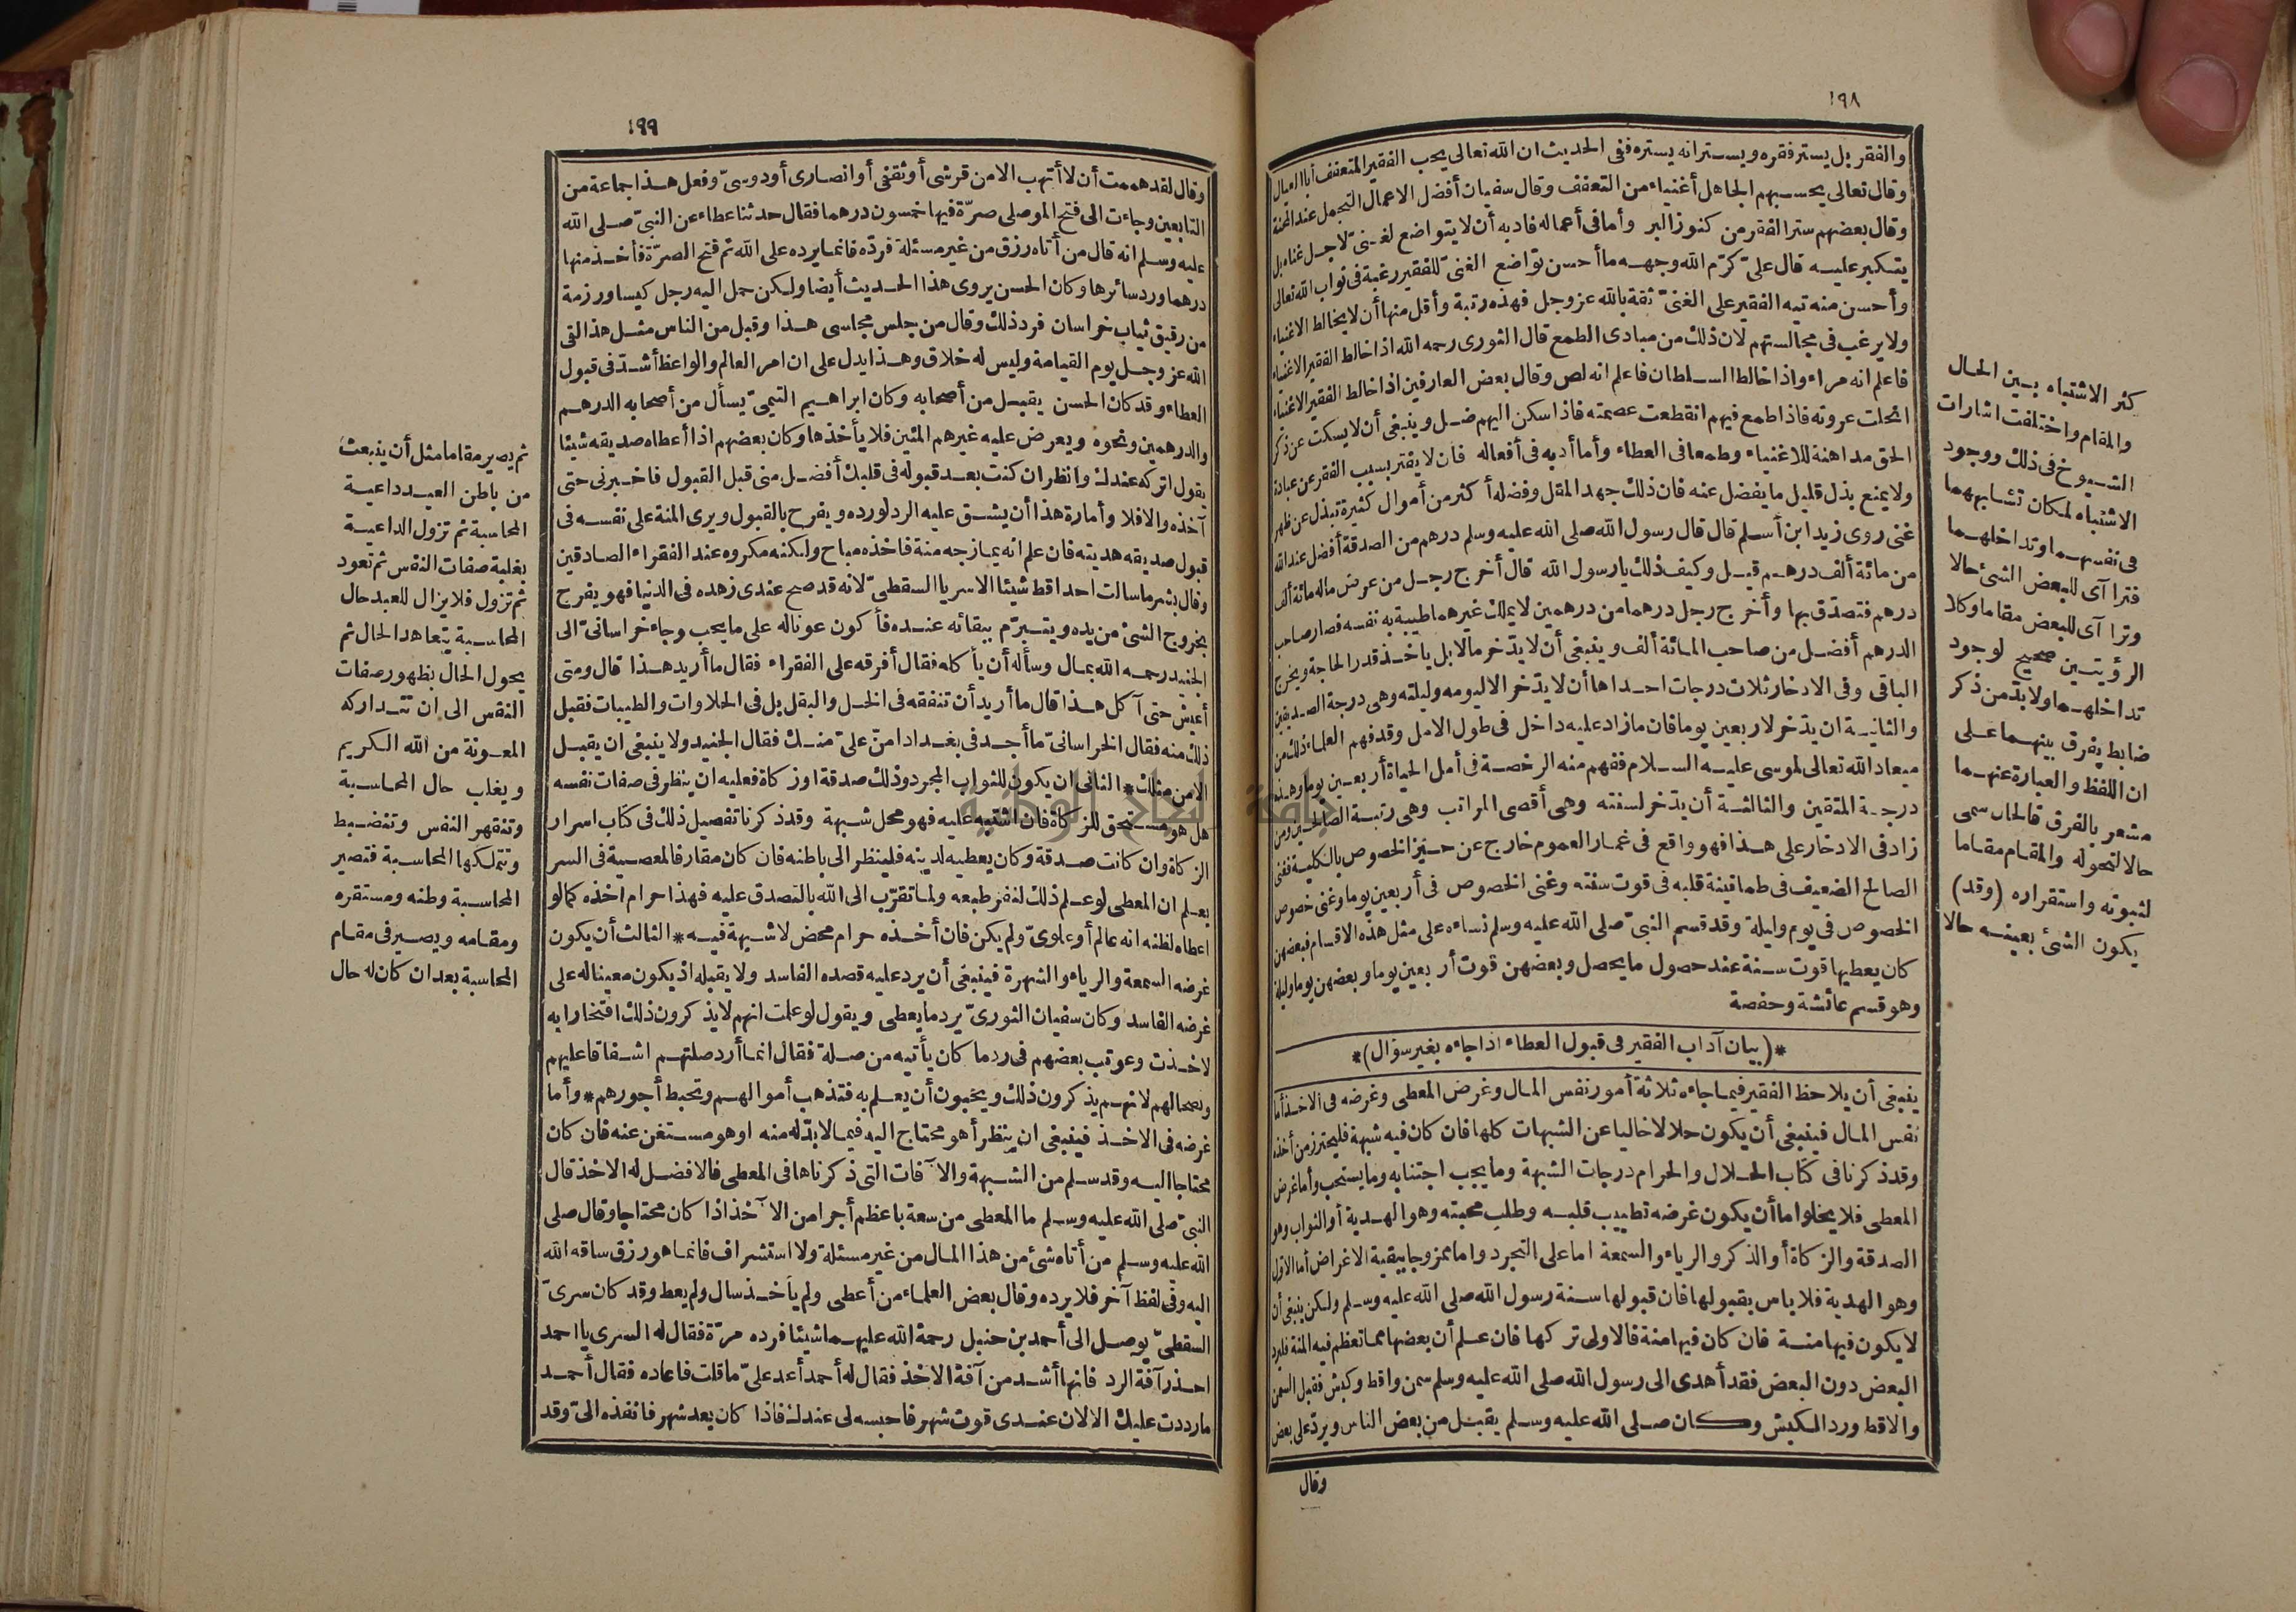 ١٩٨
والفقر بل يستر فقره ويستر انه يستره ففى الحديث ان الله تعالى يحب الفقير المتعفف أبا العيال
وقال تعالى يحسبهم الجاهل أغنياء من التعفف وقال سفيان أفضل الاعمال التجمل عند المحنة
وقال بعضهم ستر الفقر من كنوز البر وأما فى أعماله فادبه أن لا يتواضع لغنىّ لاجل غناه بل
يتكبر عليه قال علىّ كرّم الله وجهه ما أحسن تواضع الغنىّ للفقير رغبة فى ثواب الله تعالى
وأحسن منه تيه الفقير على الغنىّ ثقة بالله عز وجل فهذه رتبة وأقل منها أن لا يخالط الاغنياء
ولا يرغب فى مجالستهم لان ذلك من مبادى الطمع قال الثورى رحمه الله اذا خالط الفقير الاغنياء
فاعلم انه مراء واذا خالط السلطان فاعلم انه لص وقال بعض العارفين اذا خالط الفقير الاغنياء
انحلت عروته فاذا طمع فيهم انقطعت عصمته فاذا سكن اليهم ضل وينبغى أن لا يسكت عن ذكر
الحق مداهنة للاغنياء وطمعا فى العطاء وأما أدبه فى أفعاله فان لا يفتر بسبب الفقر عن عبادة
ولا يمنع بذل قليل ما يفضل عنه فان ذلك جهد المقل وفضله أكثر من أموال كثيرة تبذل عن ظهر
غنى روى زيد ابن أسلم قال قال رسول الله صلى الله عليه وسلم درهم من الصدقة أفضل عند الله
من مائة ألف درهم قيل وكيف ذلك يارسول الله قال أخرج رجل من عرض ماله مائة ألف
درهم فتصدّق بها وأخرج رجل درهما من درهمين لا يملك غيرهما طيبة به نفسه فصار صاحب
الدرهم أفضل من صاحب المائة ألف وينبغى أن لا يدّخر مالا بل ياخذ قدر الحاجة ويخرج
الباقى وفى الادخار ثلاث درجات احداها أن لا يدّخر الا ليومه وليلته وهى درجة الصديقين
والثانية ان يدّخر لاربعين يوما فان مازاد عليه داخل فى طول الامل وقد فهم العلماء ذلك من
ميعاد الله تعالى لموسى عليه السلام ففهم منه الرخصة فى أمل الحياة أربعين يوما وهذه
درجة المتقين والثالثة أن يدّخر لسنته وهى أقصى المراتب وهى رتبة الصالحين ومن
زاد فى الادخار على هذا فهو واقع فى غمار العموم خارج عن حيز الخصوص بالكلية فغنى
الصالح الضعيف فى طمانينة قلبه فى قوت سنته وغنى الخصوص فى أربعين يوما وغنى خصوص
الخصوص فى يوم وليلة وقد قسم النبىّ صلى الله عليه وسلم نساءه على مثل هذه الاقسام فبعضهن
كان يعطيها قوت سنة عند حصول ما يحصل وبعضهن قوت أربعين يوما وبعضهن يوما وليلة
وهو قسم عائشة وحفصة
*(بيان آداب الفقير فى قبول العطاء اذا جاءه بغير سؤال)*
ينبغى أن يلاحظ الفقير فيما جاءه ثلاثة أمور نفس المال وغرض المعطى وغرضه فى الاخذ أما
نفس المال فينبغى أن يكون حلالا خاليا عن الشبهات كلها فان كان فيه شبهة فليحترز من أخذه
وقد ذكرنا فى كتاب الحلال والحرام درجات الشبهة وما يجب اجتنابه وما يستحب وأما غرض
المعطى فلا يخلوا ما أن يكون غرضه تطييب قلبه وطلب محبته وهو الهدية أو الثواب وهو
الصدقة والزكاة أو الذكر والرياء والسمعة اما على التجرد واما ممزوجا ببقية الاغراض أما الاوّل
وهو الهدية فلا باس بقبولها فان قبولها سنة رسول الله صلى الله عليه وسلم ولكن ينبغى أن
لا يكون فيها منة فان كان فيها منة فالاولى تركها فان علم أن بعضها مما تعظم فيه المنة فليرد
البعض دون البعض فقد أهدى الى رسول الله صلى الله عليه وسلم سمن واقط وكبش فقبل السمن
والاقط ورد الكبش وكان صلى الله عليه وسلم يقبل من بعض الناس ويردّ على بعض
وقال
كثر الاشتباه بين الحال
والمقام واختلفت اشارات
الشيوخ فى ذلك ووجود
الاشتباه لمكان تشابههما
فى نفسهما وتداخلهما
فتراآى للبعض الشئ حالا
وتراآى للبعض مقاما وكلا
الرؤيتين صحيح لوجود
تداخلهما ولابدّ من ذكر
ضابط يفرق بينهما على
ان اللفظ والعبارة عنهما
مشعر بالفرق فالحال سمى
حالا لتحوله والمقام مقاما
لثبوته واستقراره (وقد)
يكون الشئ بعينه حالا
١٩٩
وقال لقد هممت أن لا أتهب الا من قرشى أو ثقفى أو انصارى أو دوسىّ وفعل هذا جماعة من
التابعين وجاءت الى فتح الموصلى صرّة فيها خمسون درهما فقال حدثنا عطاء عن النبىّ صلى الله
عليه وسلم انه قال من أتاه رزق من غير مسئلة فردّه فانما يرده على الله ثم فتح الصرّة فأخذ منها
درهما ورد سائرها وكان الحسن يروى هذا الحديث أيضا ولكن حمل اليه رجل كيسا ورزمة
من رقيق ثياب خراسان فرد ذلك وقال من جلس مجلسى هذا وقبل من الناس مثل هذا لقى
الله عز وجل يوم القيامة وليس له خلاق وهذا يدل على ان امر العالم والواعظ أشدّ فى قبول
العطاء وقد كان الحسن يقبل من أصحابه وكان ابراهيم التيمىّ يسأل من أصحابه الدرهم
والدرهمين ونحوه ويعرض عليه غيرهم المئين فلا يأخذها وكان بعضهم اذا أعطاه صديقه شيئا
يقول اتركه عندك وانظر ان كنت بعد قبوله فى قلبك أفضل منى قبل القبول فاخبرنى حتى
آخذه والا فلا وأمارة هذا أن يشق عليه الرد لو رده ويفرح بالقبول ويرى المنة على نفسه فى
قبول صديقه هديته فان علم انه يمازجه منة فاخذه مباح ولكنه مكروه عند الفقراء الصادقين
وقال بشر ماسالت احدا قط شيئا الا سريا السقطىّ لانه قد صح عندى زهده فى الدنيا فهو يفرح
بخروج الشئ من يده ويتبرّم ببقائه عنده فأكون عونا له على ما يحب وجاء خراسانىّ الى
الجنيد رحمه الله بمال وسأله أن يأكله فقال أفرقه على الفقراء فقال ما أريد هذا قال ومتى
أعيش حتى آكل هذا قال ما أريد أن تنفقه فى الخل والبقل بل فى الحلاوات والطيبات فقبل
ذلك منه فقال الخراسانىّ ما أجد فى بغداد امنّ علىّ منك فقال الجنيد ولا ينبغى ان يقبل
الا من مثلك * الثانى ان يكون للثواب المجرد وذلك صدقة او زكاة فعليه ان ينظر فى صفات نفسه
هل هو مستحق للزكاة فان اشتبه عليه فهو محل شبهة وقد ذكرنا تفصيل ذلك فى كتاب اسرار
الزكاة وان كانت صدقة وكان يعطيه لدينه فلينظر الى باطنه فان كان مقارفا لمعصية فى السر
يعلم ان المعطى لو علم ذلك لنفر طبعه ولما تقرّب الى الله بالتصدق عليه فهذا حرام اخذه كما لو
اعطاه لظنه انه عالم أو علوىّ ولم يكن فان أخذه حرام محض لا شبهة فيه * الثالث أن يكون
غرضه السمعة والرياء والشهرة فينبغى أن يرد عليه قصده الفاسد ولا يقبله اذ يكون معينا له على
غرضه الفاسد وكان سفيان الثورىّ يرد ما يعطى ويقول لو علمت انهم لا يذكرون ذلك افتخارا به
لاخذت وعوتب بعضهم فى رد ما كان يأتيه من صلة فقال انما أرد صلتهم اشفاقا عليهم
ونصحا لهم لانهم يذكرون ذلك ويحبون أن يعلم به فتذهب أموالهم وتحبط أجورهم * وأما
غرضه فى الاخذ فينبغى ان ينظر أهو محتاج اليه فيما لابدّ له منه او هو مستغن عنه فان كان
محتاجا اليه وقد سلم من الشبهة والآفات التى ذكرناها فى المعطى فالافضل له الاخذ قال
النبىّ صلى الله عليه وسلم ما المعطى من سعة باعظم أجرا من الآخذ اذا كان محتاجا وقال صلى
الله عليه وسلم من أتاه شئ من هذا المال من غير مسئلة ولا استشراف فانما هو رزق ساقه الله
اليه وفى لفظ آخر فلا يرده وقال بعض العلماء من أعطى ولم يأخذ سال ولم يعط وقد كان سرىّ
السقطىّ يوصل الى أحمد بن حنبل رحمة الله عليهما شيئا فرده مرّة فقال له السرى يا احمد
احذر آفة الرد فانها أشد من آفة الاخذ فقال له أحمد أعد علىّ ما قلت فاعاده فقال أحمد
ما رددت عليك الا لان عندى قوت شهر فاحبسه لى عندك فاذا كان بعد شهر فانفذه الىّ وقد
ثم يصير مقاما مثل أن ينبعث
من باطن العبد داعية
المحاسبة ثم تزول الداعية
بغلبة صفات النفس ثم تعود
ثم تزول فلا يزال للعبد حال
المحاسبة يتعاهد الحال ثم
يحول الحال بظهور صفات
النفس الى ان تتداركه
المعونة من الله الكريم
ويغلب حال المحاسبة
وتنقهر النفس وتنضبط
وتتملكها المحاسبة فتصير
المحاسبة وطنه ومستقره
ومقامه ويصير فى مقام
المحاسبة بعد ان كان له حال
جامعة النجاح الوطنية